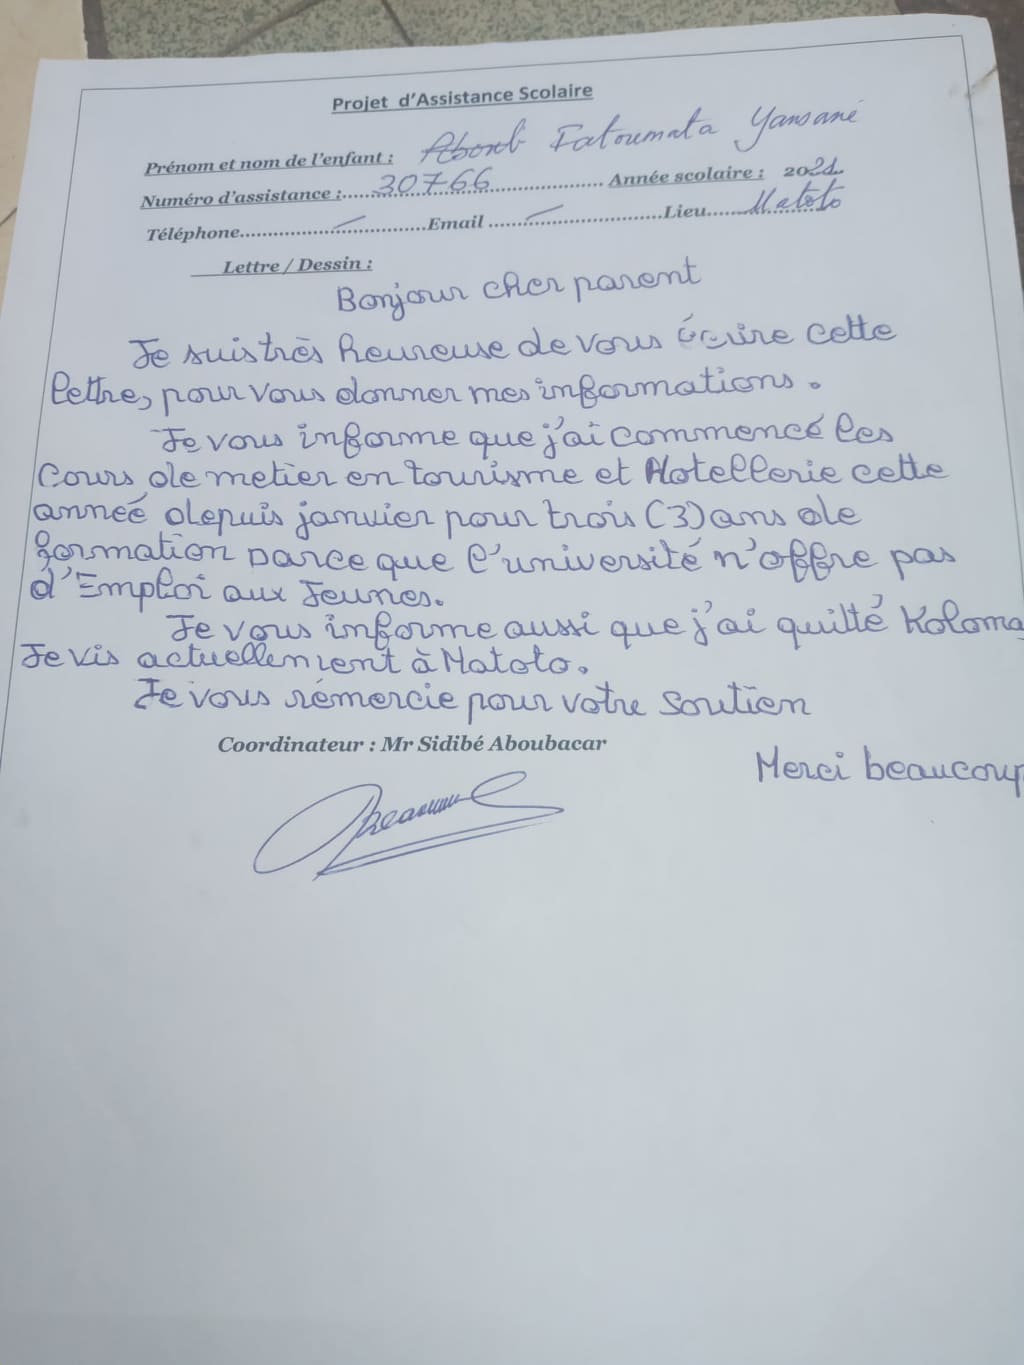 Projet d'Assistance Scolaire
Prénom et nom de l'enfant : Fatoumata Yansané
Numéro d'assistance :....30766.................... Année scolaire : 2021
Téléphone..............................Email ............................Lieu......Matoto
Lettre / Dessin :
Bonjour cher parent
Je suis très heureuse de vous écrire cette
lettre, pour vous donner mes informations.
Je vous informe que j'ai commencé les
Cours de metier en tourisme et Hotellerie cette
anneé depuis janvier pour trois (3) ans de
formation parce que l'université n'offre pas
d'Emploi aux Jeunes.
Je vous informe aussi que j'ai quitté Koloma
Je vis actuellement à Matoto.
Je vous rémercie pour votre soutien
Coordinateur : Mr Sidibé Aboubacar
Merci beaucoup